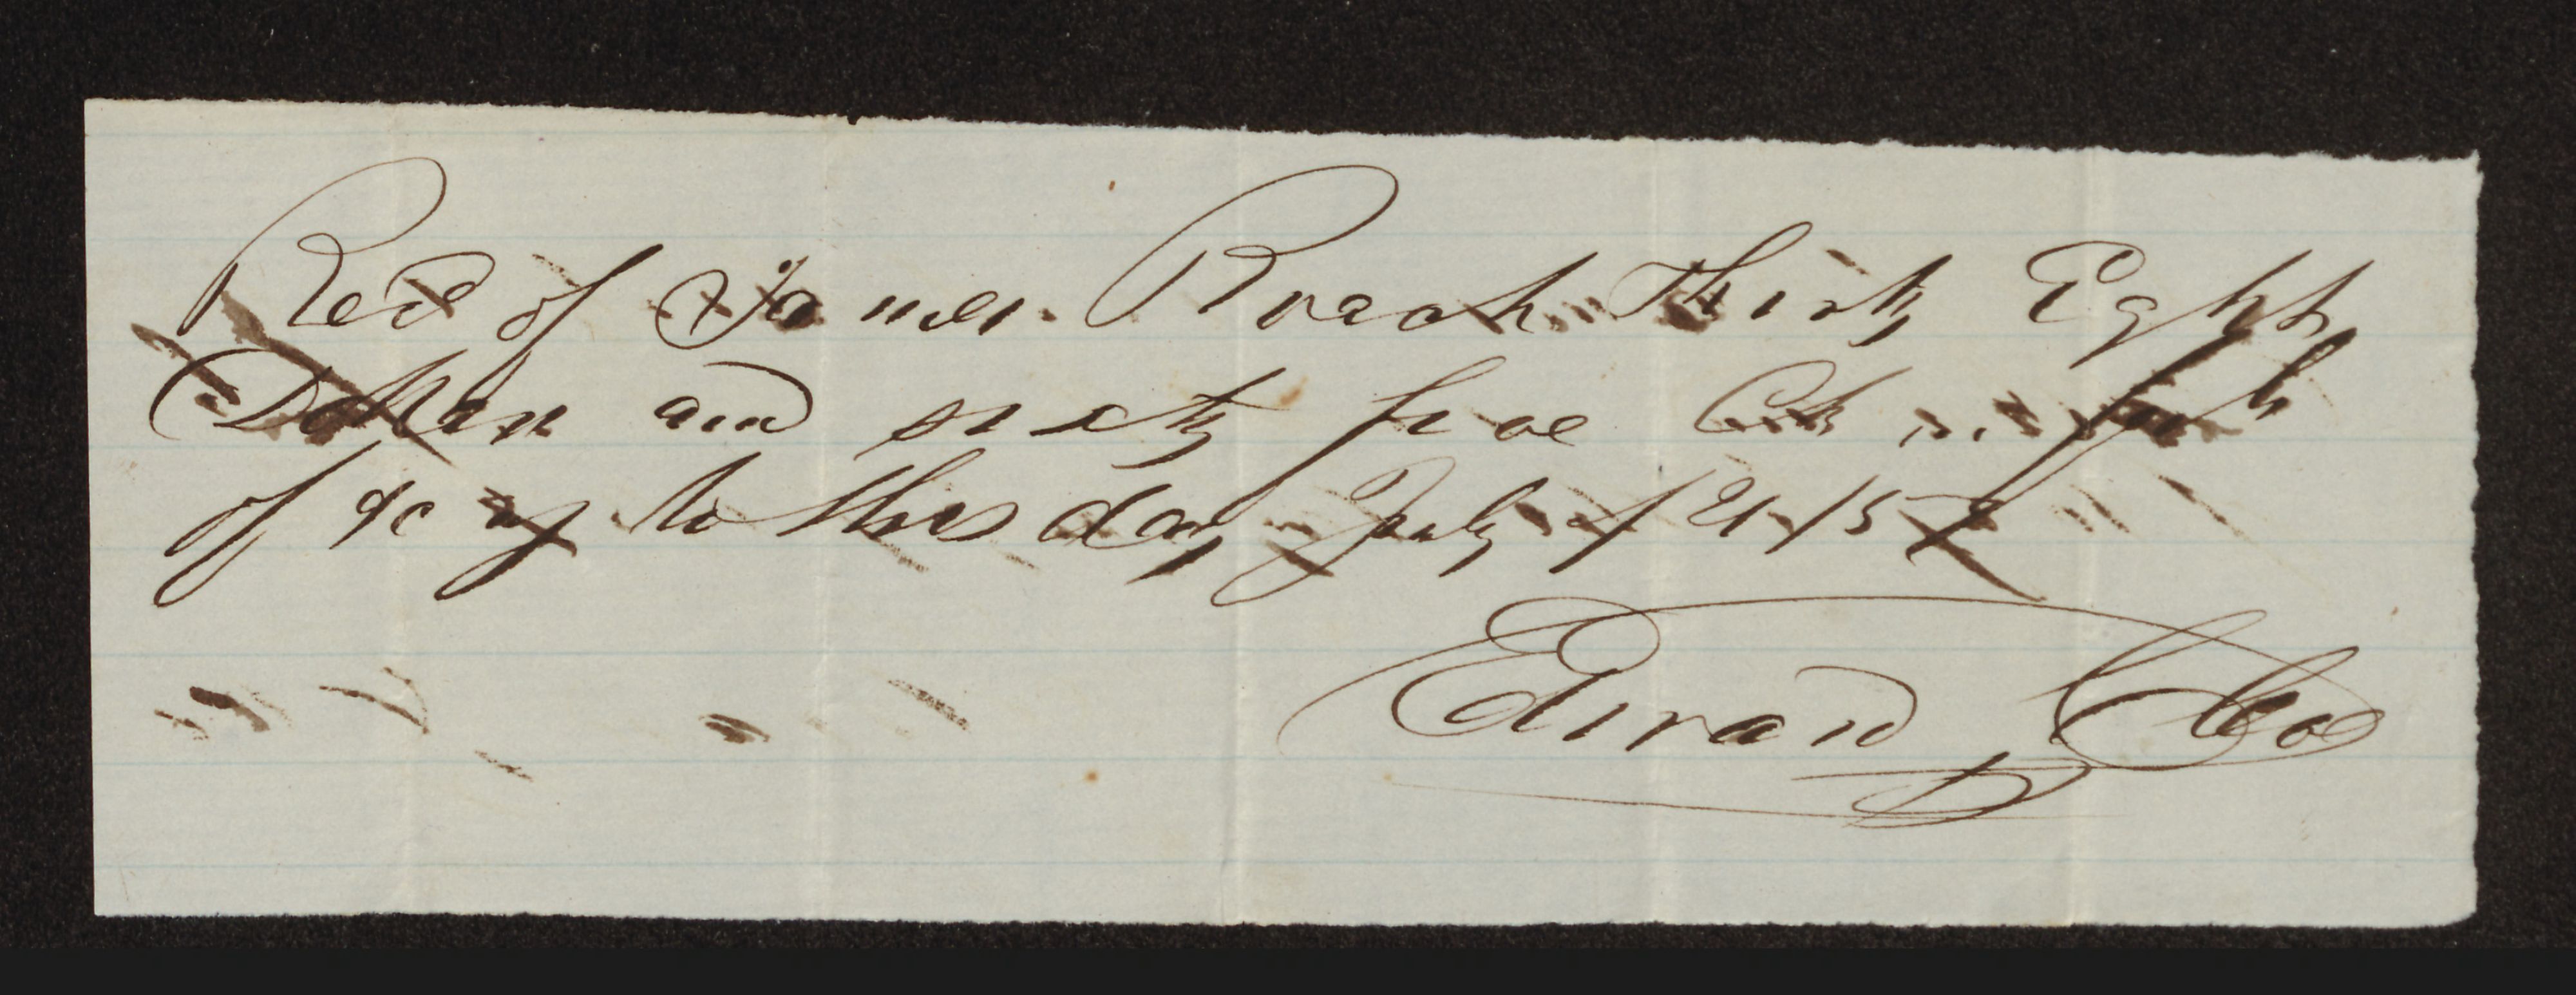 Recd of James Roach Thirty Eght
Dollars and sixty five Cts in full
of %c up to this day July / 21 / 57
Edward Cloe